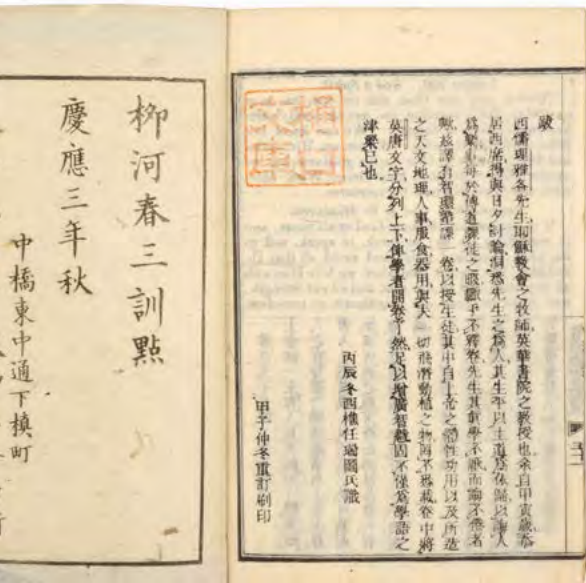 跋
西儒理雅各先生耶穌教會之牧師英華書院之教授也余自甲寅歲忝
居西席得與日夕討論洞悉先生之爲人其生平以主道爲依歸以誨人
爲樂事每於傳道課徒之暇猶手不釋卷先生其眞學不厭而誨不倦者
歟茲譯有智環啓蒙一卷以授生徒其中自上帝之體性功用以及所造
之天文地理人事服食器用與夫一切飛潛動植之物罔不悉載卷中將
英唐文字分列上下俾學者開卷了然足以增廣智識固不僅爲學語之
津梁已也
丙辰冬西樵任瑞圖氏識
甲子仲冬重訂刷印
樋口
文庫
柳河春三訓點
慶應三年秋
中橋東中通下槙町